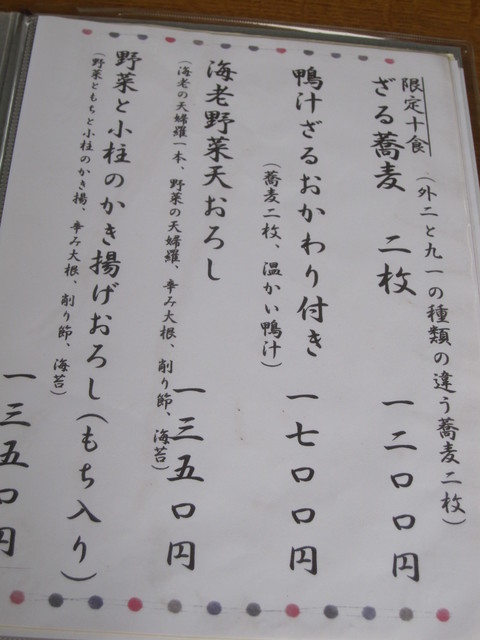 限定十食
(外二と九一の種類の違う蕎麦二枚)
ざる蕎麦 二枚 一二〇〇円
鴨汁ざるおかわり付き 一七〇〇円
(蕎麦二枚、温かい鴨汁)
海老野菜天おろし 一三五〇円
(海老の天婦羅一本、野菜の天婦羅、辛み大根、削り節、海苔)
野菜と小柱のかき揚げおろし(もち入り)
(野菜ともちと小柱のかき揚、辛み大根、削り節、海苔)
一三五〇円